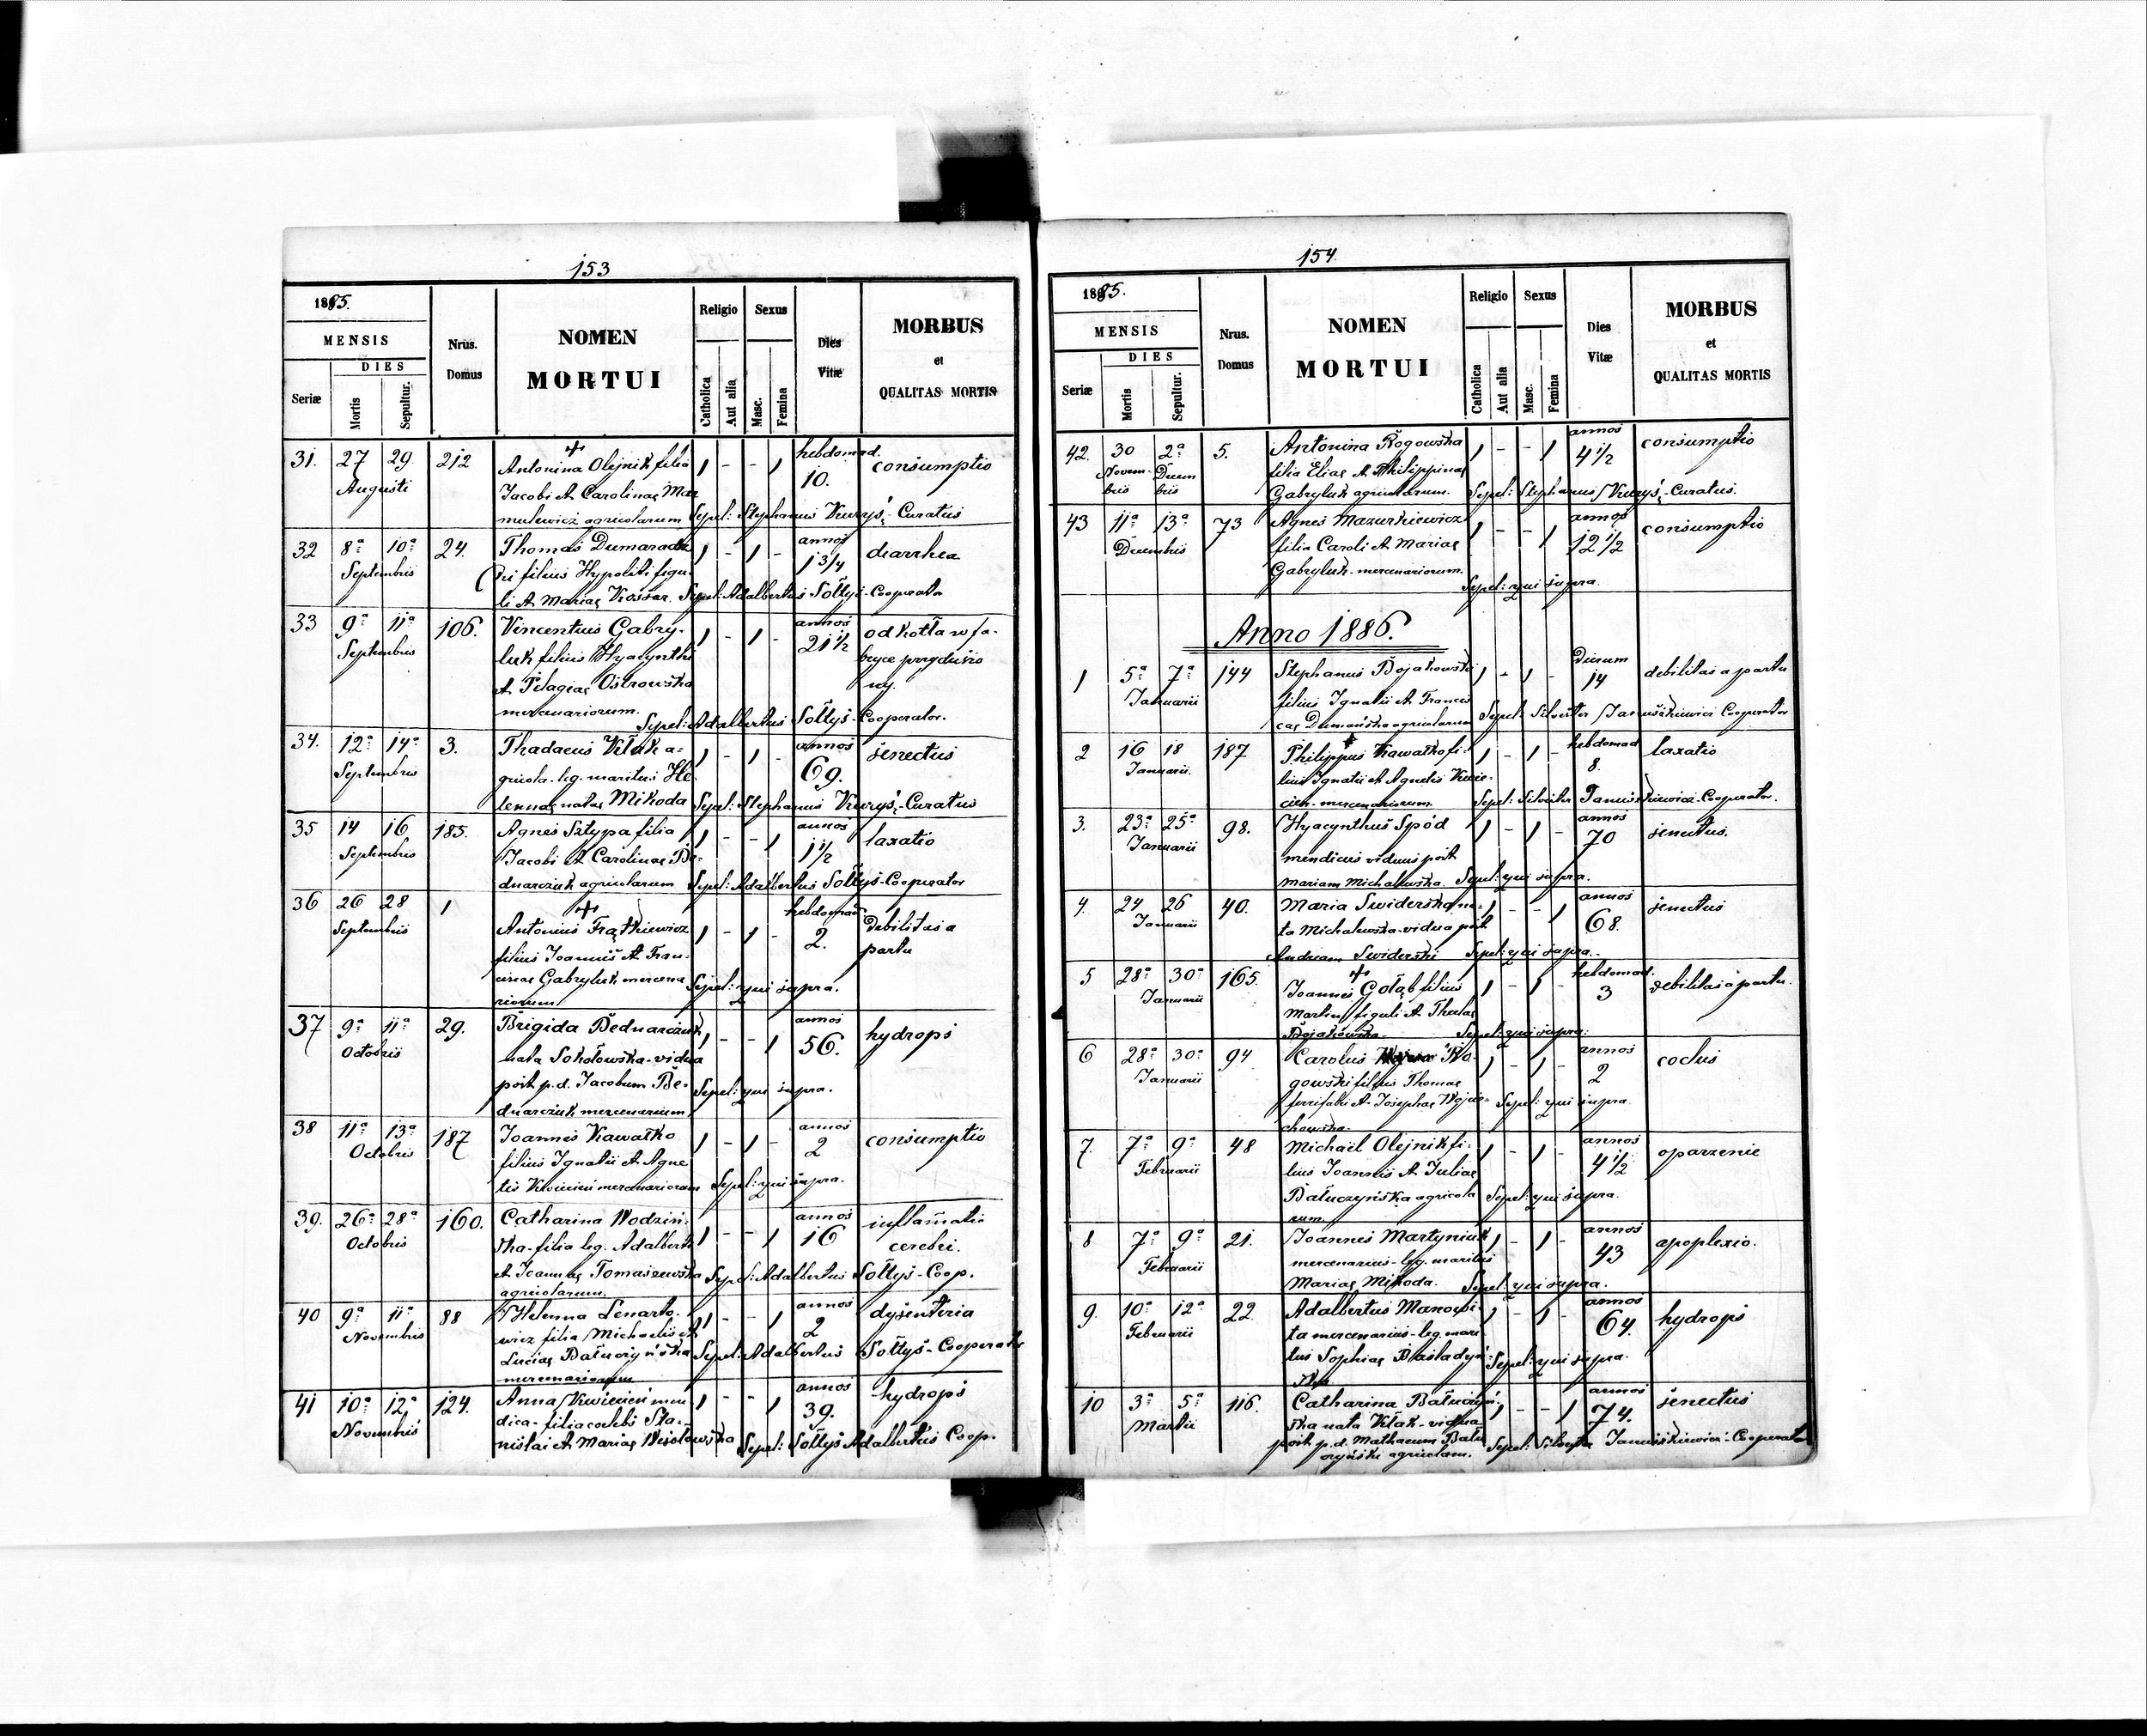 153
1885.
MENSIS
DIES
Seriæ
Mortis
Sepultur.
Nrus.
Domus
NOMEN
MORTUI
Religio
Catholica
Aut alia
Sexus
Masc.
Femina
Dies
Vitæ
MORBUS
et
QUALITAS MORTIS
31. 27 29 212 Antonina Olejnik filia 1 - - 1 hebdomad. 10. consumptio
Augusti Jacobi et Carolinae Mar
mulewicz agricolarum Sepel: Stephanus Kuryś, Curatus
32 8a 10a 24. Thomas Dumaradz 1 - 1 - annos 1 3/4 diarrhea
Septembris ki filius Hypoliti figu-
li et Mariae Sepel: Adalbertus Sołtyś-Cooperator
33 9a 11a 106. Vincentius Gabry- 1 - 1 - annos 21 1/2 od kotła w fa-
Septembris luk filius Hyacynthi
et Pelagiae Ostrowska
mercenariorum. Sepel: Adalbertus Sołtyś-Cooperator.
34. 12a 14a 3. Thadaeus Kłak a- 1 - 1 - annos 69. senectus
Septembris gricola leg. maritus He
lennae natae Mikoda Sepel: Stephanus Kuryś-Curatus
35 14 16 185. Agnes Sztypa filia 1 - - 1 annos 1 1/2 laxatio
Septembris Jacobi et Carolinae Be-
dnarczuk agricolarum Sepel: Adalbertus Sołtyś-Cooperator
36 26 28 1 Antonius Frątkiewicz 1 - 1 - hebdomad 2. debilitas a
Septembris filius Joannis et Fran- partu
cisae Gabryluk mercena
riorum Sepel: qui supra.
37 9a 11a 29. Brigida Bednarczuk 1 - - 1 annos 56. hydrops
Octobris nata Sokołowska-vidua
post p.d. Jacobum Be-
dnarczuk mercenarium Sepel: qui supra.
38 11a 13a 187 Joannes Kawałko 1 - 1 - annos 2 consumptio
Octobris filius Ignatii et Agne
tis Kwiecień mercenariorum Sepel: qui supra.
39. 26a 28a 160. Catharina Wodziń- 1 - - 1 annos 16 inflamatio
Octobris ska-filia leg. Adalberti cerebri.
et Joannae Tomaszewska Sepel: Adalbertus Sołtyś-Coop.
agricolarum.
40 9a 11a 88 Helenna Lenarto- 1 - - 1 annos 2 dysenteria
Novembris wicz filia Michaelis et
Luciae Bałuczyńska Sepel: Adalbertus Sołtyś-Cooperator
mercenariorum
41 10a 12a 124. Anna Kwiecień men- 1 - - 1 annos 39. hydrops
Novembris dica-filia coelebs Sta-
nislai et Mariae Wesołowska Sepel: Sołtyś Adalbertus Coop.
154
1885.
MENSIS
DIES
Seriæ
Mortis
Sepultur.
Nrus.
Domus
NOMEN
MORTUI
Religio
Catholica
Aut alia
Sexus
Masc.
Femina
Dies
Vitæ
MORBUS
et
QUALITAS MORTIS
42. 30 2a 5. Antonina Rogowska 1 - - 1 annos 4 1/2 consumptio
Novem- Decem filia Eliae et Philippinae
bris bris Gabryluk agricolarum. Sepel: Stephanus Kuryś, Curatus.
43 11a 13a 73 Agnes Mazurkiewicz 1 - - 1 annos 12 1/2 consumptio
Decembris filia Caroli et Mariae
Gabryluk-mercenariorum. Sepel: qui supra.
Anno 1886.
1 5a 7a 144 Stephanus Bojakowski 1 - 1 - dierum 14 debilitas a partu
Januarii filius Ignatii et Francis
cae Dumańska agricolarum Sepel: Silvester Januszkiewicz Cooperator
2 16 18 187 Philippus Kawałko fi- 1 - 1 - hebdomad 8. laxatio
Januarii. lius Ignatii et Agnetis Kwie-
cień-mercenariorum. Sepel: Silvester Januszkiewicz-Cooperator.
3. 23a 25a 98. Hyacynthus Spód 1 - 1 - annos 70 senectus.
Januarii mendicus viduus post
Mariam Michałowska. Sepel: qui supra.
4. 24 26 40. Maria Swiderska na- 1 - - 1 annos 68. senectus
Januarii ta Michałowska-vidua post
Andream Swiderski Sepel: qui supra.
5 28a 30a 165. Joannes Gołąb filius 1 - 1 - hebdomad. 3 debilitas a partu.
Januarii Martini figuli et Theclae
Bojakowska Sepel: qui supra.
6 28a 30a 94 Carolus Ro- 1 - 1 - annos 2 coclus
Januarii gowski filius Thomae
ferrifabri et Josephae Wojcie- Sepel: qui supra.
chowska.
7. 7a 9a 48 Michaël Olejnik fi- 1 - 1 - annos 4 1/2 oparzenie
Februarii lius Joannis et Juliae
Bałuczyńska agricola Sepel: qui supra.
rum.
8 7a 9a 21. Joannes Martyniuk 1 - 1 - annos 43 apoplexio.
Februarii mercenarius-leg. maritus
Mariae Mikoda. Sepel: qui supra.
9. 10a 12a 22. Adalbertus Manowi- 1 - 1 - annos 64. hydrops
Februarii ta mercenarius-leg. mari
tus Sophiae Basladyń- Sepel: qui supra.
ska
10 3a 5a 116. Catharina Bałuczyń- 1 - - 1 annos 74. senectus
Martii ska nata Kłak-vidua
post p.d. Mathaeum Bału Sepel: Silvester Januszkiewicz-Cooperator
czyński agricolam.